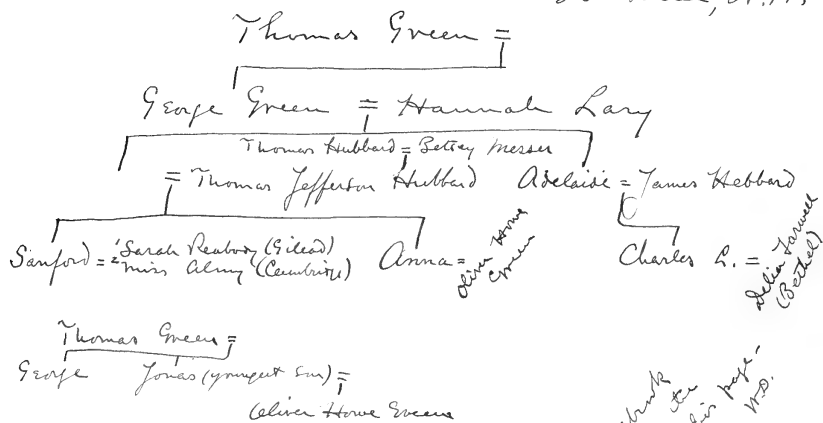 Thomas Green =
George Green = Hannah Lary
Thomas Hubbard = Betsey Messer
= Thomas Jefferson Hubbard Adelaide = James Hebbard
Sanford = 1 Sarah Peabody (Gilead)
2 Miss Almy (Cambridge)
Anna = Oliver Howe
Green
Charles L. = Delia Farwell
(Bethel)
Thomas Green =
George Jonas (youngest son) =
Oliver Howe Greene
this page -